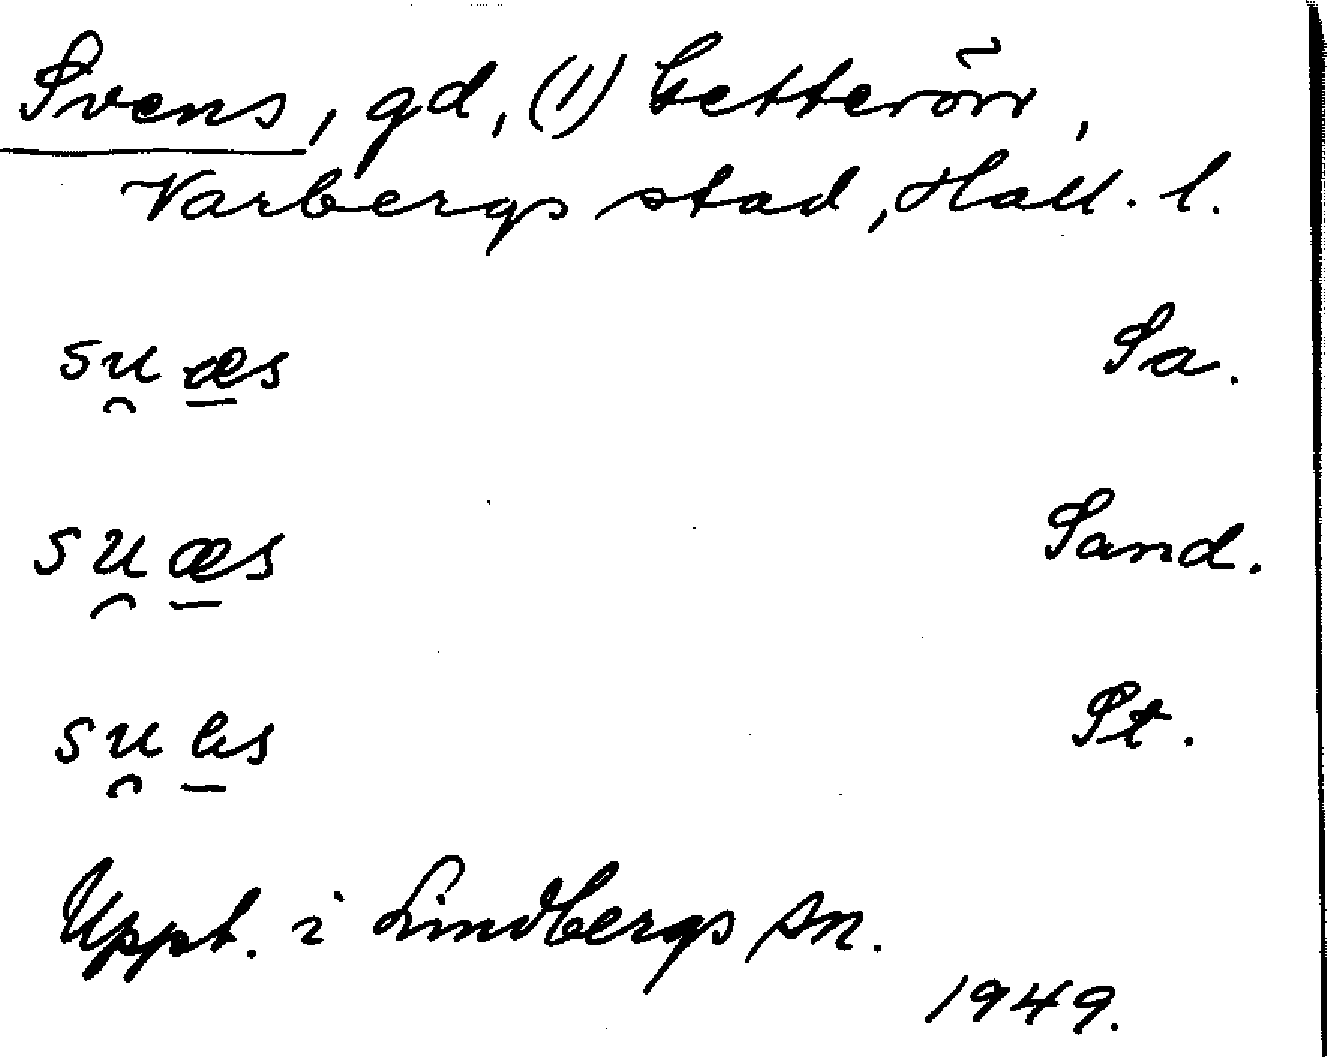 Svens, gd, (1) Getterön,
Varbergs stad, Hall. l.
su̯æ̱s Sa.
su̯æ̱s Sand.
su̯ St.
Uppt. i Lindbergs sn.
1949.